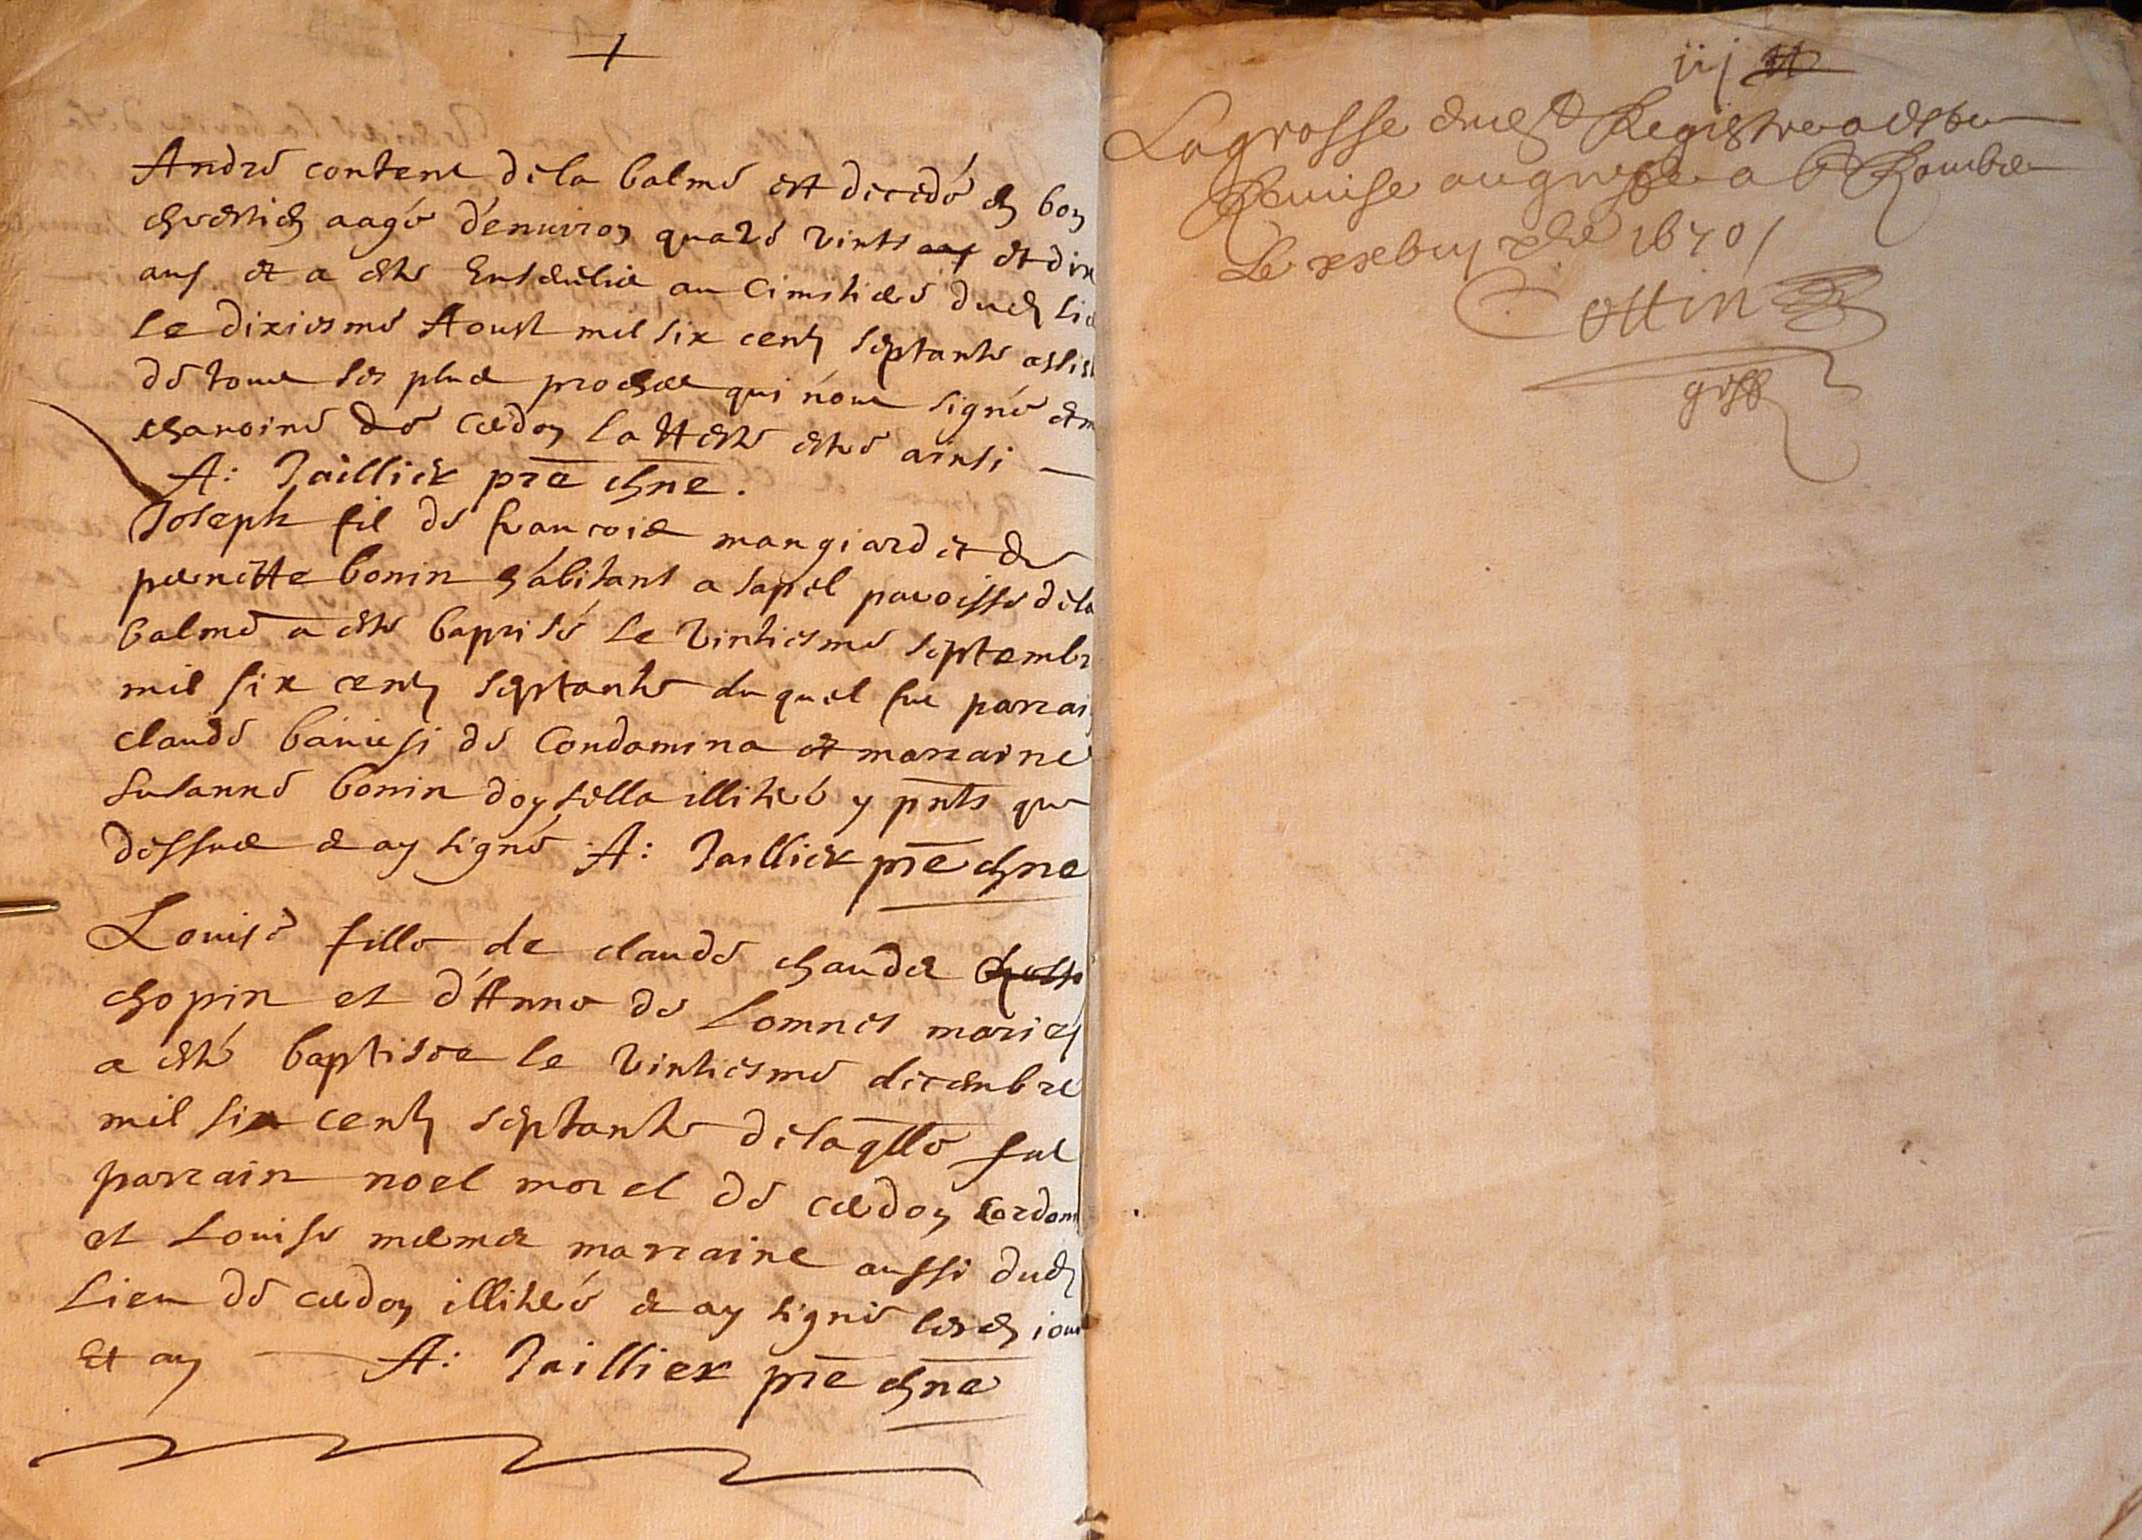 André content de la balme est decedé en bon
chrestien aagé d'enuiron quatre vints et dix
ans et a esté enseueli au Cimitiere dud lie
le dixiesme Aoust mil six cents septante assist
de tous ses plus proches qui n'ont signé et m
chanoine de Cerdon l'atteste estre ainsi
A: Taillier pre chne.
Joseph fil de francois mangiard et de
pernette bonin habitant a sapel parroisse de la
balme a esté baptisé le vintiesme septembr
mil six cents septante duquel fut parrain
claude de Condamina et marraine
Susanne bonin illiteré y pnts que
dessus & ay signé A: Taillier pre chne
Louise fille de claude
chopin et d'Anne de Lomnes mariés
a esté baptisee le vintiesme decembre
mil six cents septante de laqlle fut
parrain noel morel de cerdon cordon
et Louise mermet marraine aussi dud
lieu de cerdon illiteré & ay signé lesd iour
et an A: Taillier pre chne
iij
La grosse du Registre a esté
Remise au greffe a
Le 1670
Cottin
greff